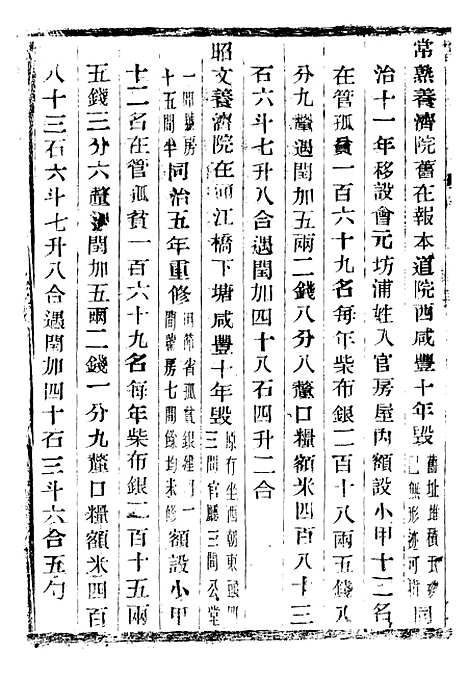 常熟養濟院舊在報本道院西咸豐十年毀舊址堆積瓦礫已無形迹可指同
治十一年移設會元坊浦姓入官房屋內額設小甲十二名
在管孤貧一百六十九名每年柴布銀二百十八兩五錢八
分九釐遇閏加五兩二錢八分八釐口糧額米四百八十三
石六斗七升八合遇閏加四十八石四升二合
昭文養濟院在江橋下塘咸豐十年毀原有坐西朝東頭門三間官廳三間公堂
一間號房十五間半同治五年重修孤貧銀號房七間餘均未修額設小甲
十二名在管孤貧一百六十九名每年柴布銀二百十五兩
五錢三分六釐遇閏加五兩二錢一分九釐口糧額米四百
八十三石六斗七升八合遇閏加四十石三斗六合五勺